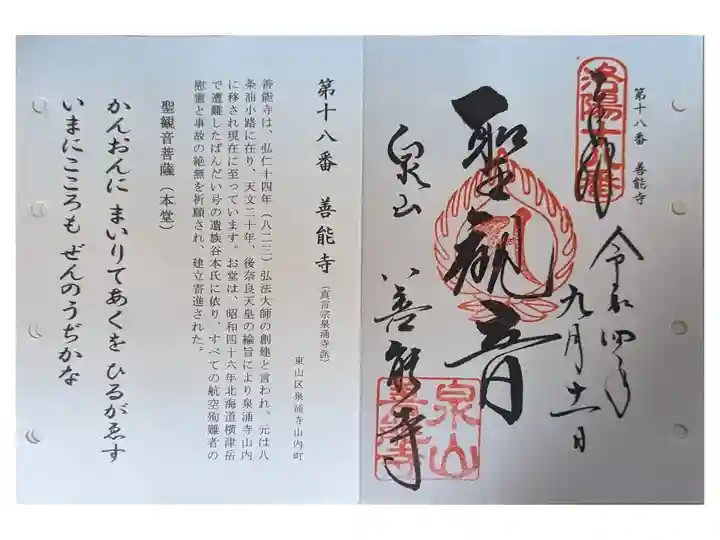 第十八番 善能寺
洛陽十八番
奉拝
令和四年
九月十一日
聖観音
泉山 善能寺
泉山
善能寺
第十八番 善能寺(真言宗泉涌寺派)
東山区泉涌寺山内町
善能寺は、弘仁十四年(八二三)弘法大師の創建と言われ、元は八
条油小路に在り、天文二十年、後奈良天皇の綸旨により泉涌寺山内
に移され現在に至っています。お堂は、昭和四十六年北海道横津岳
で遭難したばんだい号の遺族谷本氏に依り、すべての航空殉難者の
慰霊と事故の絶無を祈願され、建立寄進された。
聖観音菩薩(本堂)
かんおんに まいりてあくを ひるがゑす
いまにこころも ぜんのうぢかな